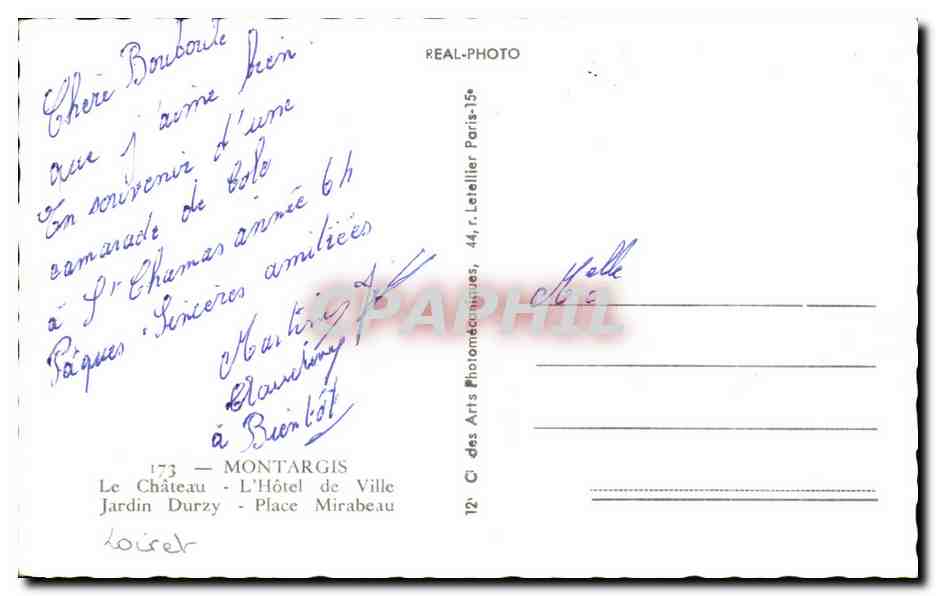 Chère Bouboule
que j'aime bien.
En souvenir d'une
camarade de Colo
à St Chamas année 64
Pâques. Sincères amitiées
Martine
à Bientôt
173 — MONTARGIS
Le Château - L'Hôtel de Ville
Jardin Durzy - Place Mirabeau
Loiret
REAL-PHOTO
12 Ci des Arts Photomécaniques, 44, r. Letellier Paris-15e
CPAPHIL
Melle